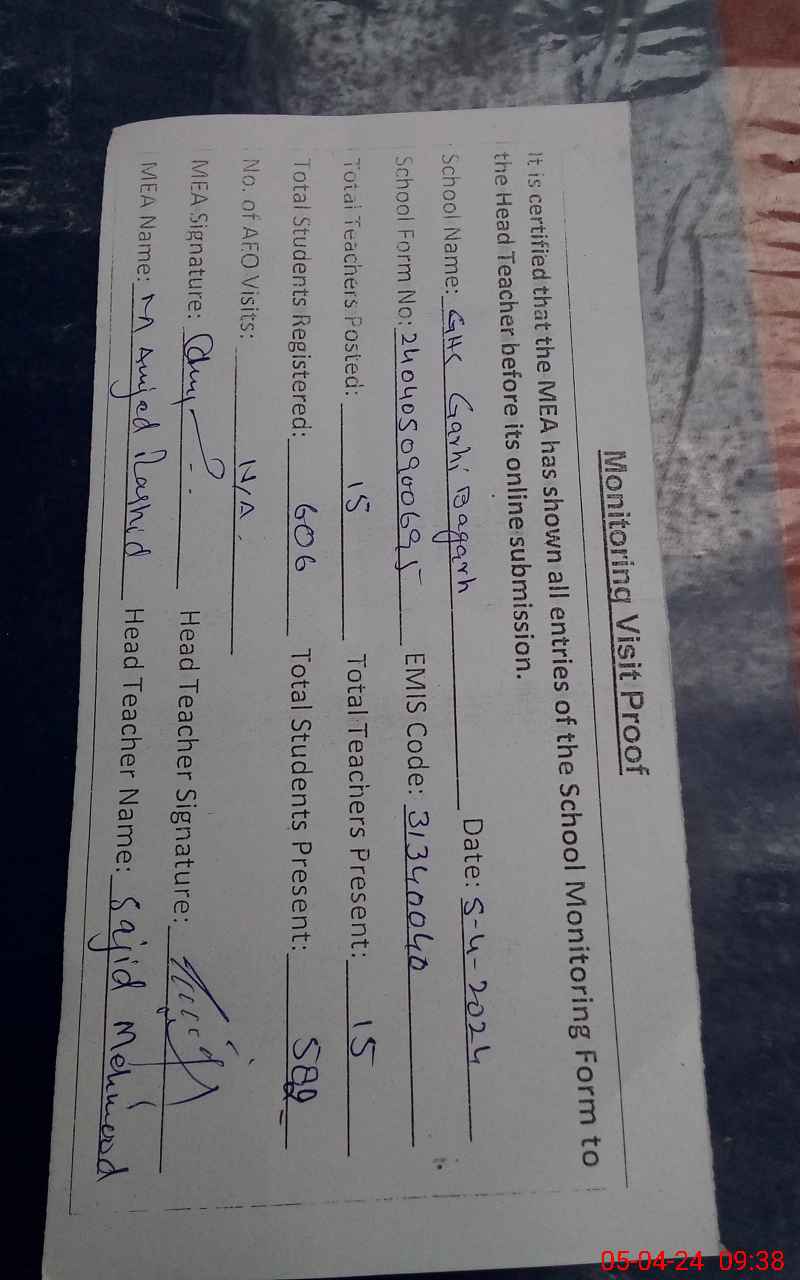 Monitoring Visit Proof
It is certified that the MEA has shown all entries of the School Monitoring Form to
the Head Teacher before its online submission.
School Name: GHS Garhi Bagarh Date: 5-4-2024
School Form No: 2404050900695 EMIS Code: 31340040
Total Teachers Posted: 15 Total Teachers Present: 15
Total Students Registered: 606 Total Students Present: 582
No. of AEO Visits: N/A.
MEA Signature: Head Teacher Signature:
MEA Name: M Amjad Rashid Head Teacher Name: Sajid Mehmood
05-04-24 09:38